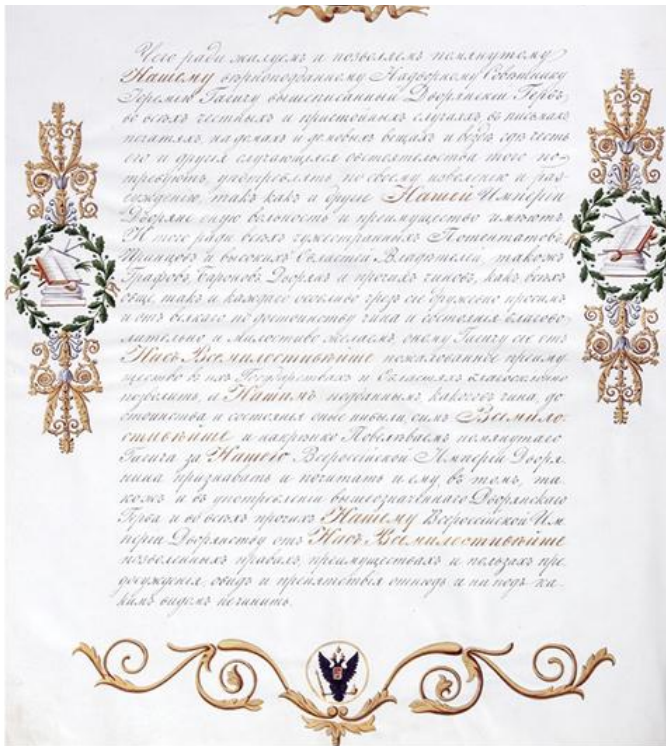 Чего ради жалуемъ и позволяемъ помянутому
Нашему вѣрноподданному Надворному Совѣтнику
Іеремію Гагичу вышеписанный Дворянскій Гербъ,
во всѣхъ честныхъ и пристойныхъ случаяхъ въ письмахъ
печатяхъ, на домахъ и домовыхъ вещахъ и вездѣ гдѣ честь
его и другія случающіяся обстоятельства того по-
требуютъ, употреблять по своему изволенію и раз-
сужденію, такъ какъ и другіе Нашей Имперіи
Дворяне оную вольность и преимущество имѣютъ.
И того ради всѣхъ чужестранныхъ Потентатовъ
Принцовъ и высокихъ Областей Владѣтелей, такожъ
Графовъ, Бароновъ, Дворянъ и прочихъ чиновъ, какъ всѣхъ
обще, такъ и каждаго особливо чрезъ сіе дружебно просимъ
и отъ всякаго по достоинству чина и состоянія благово-
лительно и милостиво желаемъ, оному Гагичу сіе отъ
Насъ Всемилостивѣйше пожалованное преиму-
щество въ ихъ Государствахъ и Областяхъ благосклонно
позволить, а Нашимъ подданнымъ, какого бъ чина, до-
стоинства и состоянія оные ни были, симъ Всемило-
стивѣйше и накрѣпко Повелѣваемъ помянутаго
Гагича за Нашего Всероссійской Имперіи Дворя-
нина признавать и почитать и ему, въ томъ, та-
кожъ и въ употребленіи вышеозначеннаго Дворянскаго
Герба и во всѣхъ прочихъ Нашему Всероссійской Им-
періи Дворянству отъ Насъ Всемилостивѣйше
позволенныхъ правахъ, преимуществахъ и пользахъ пре-
досужденія, обидъ и препятствія отнюдь и ни подъ ка-
кимъ видомъ не чинить.